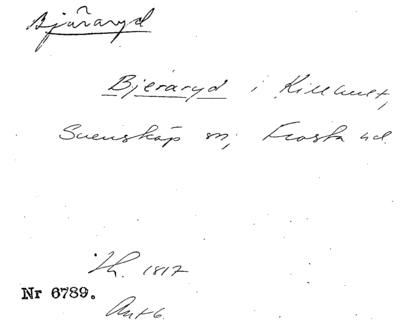 Bjäraryd
Bjeraryd i Killhult,
Svensköp sn; Frosta hd.
Th. 1817
Nr 6789.
Ant 6.